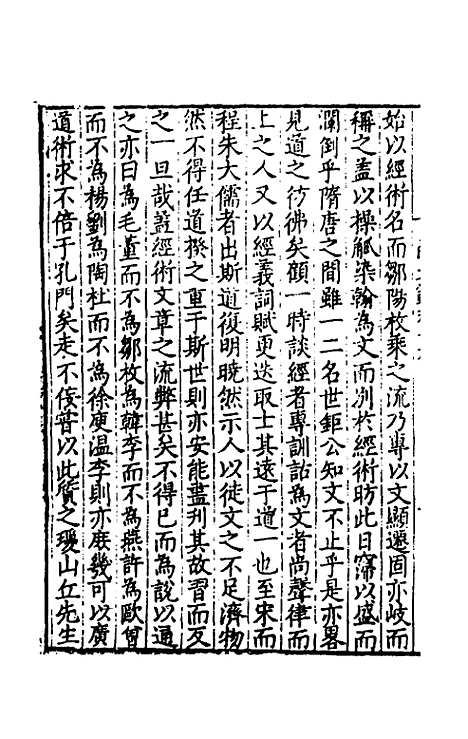 始以經術名而鄒陽枚乘之流乃專以文顯遷固亦岐而
稱之盖以操觚染翰為文而別於經術昉此日寖以盛而
瀾倒乎隋唐之間雖一二名世鉅公知文不止乎是亦畧
見道之彷彿矣顧一時談經者專訓詁為文者尚聲律而
上之人又以經義詞賦更迭取士其遠于道一也至宋而
程朱大儒者出斯道復明曉然示人以徒文之不足濟物
然不得任道揆之重于斯世則亦安能盡刋其故習而反
之一旦哉蓋經術文章之流弊甚矣不得已而為說以通
之亦曰為毛董而不為鄒枚為韓李而不為燕許為歐曾
而不為楊劉為陶杜而不為徐庾溫李則亦庻幾可以廣
道術求不倍于孔門矣走不佞嘗以此質之瓊山丘先生